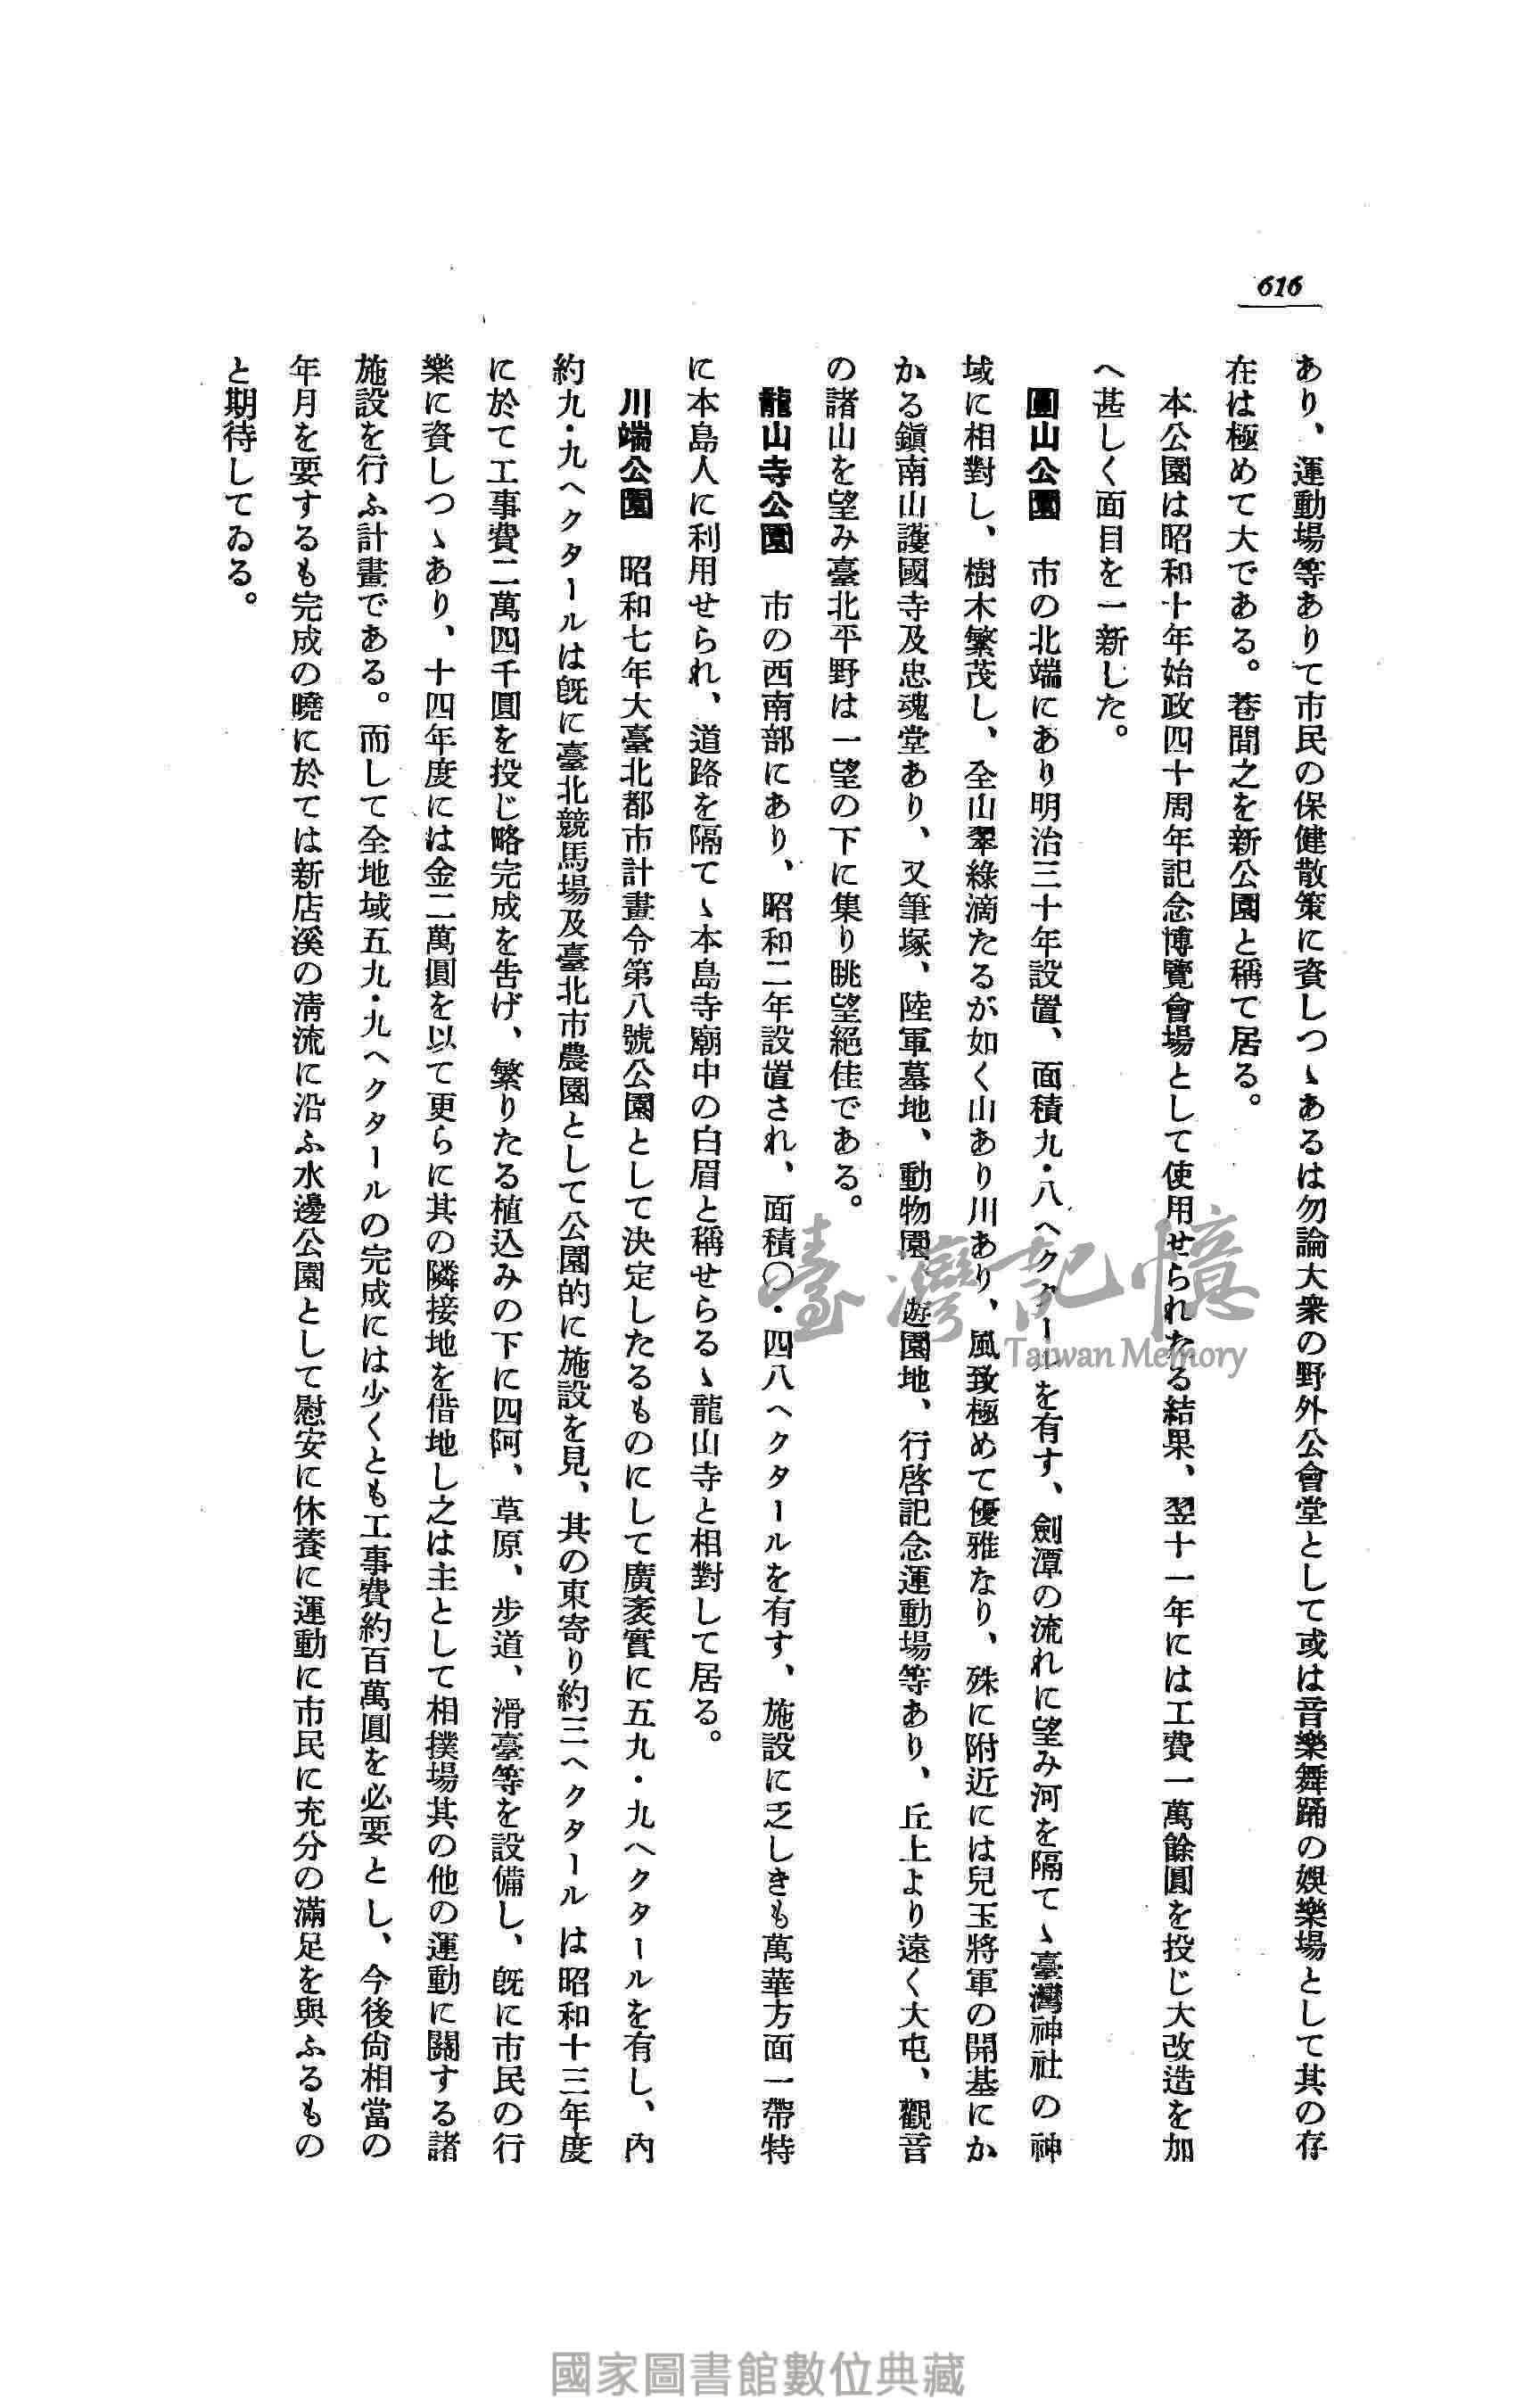 616
あり、運動場等ありて市民の保健散策に資しつゝあるは勿論大衆の野外公會堂として或は音樂舞踊の娯樂場として其の存
在は極めて大である。巷間之を新公園と稱て居る。
本公園は昭和十年始政四十周年記念博覽會場として使用せられたる結果、翌十一年には工費一萬餘圓を投じ大改造を加
へ甚しく面目を一新した。
圓山公園　市の北端にあり明治三十年設置、面積九・八ヘクタールを有す、劍潭の流れに望み河を隔てゝ臺灣神社の神
域に相對し、樹木繁茂し、全山翠綠滴たるが如く山あり川あり、風致極めて優雅なり、殊に附近には兒玉將軍の開基にか
かる鎭南山護國寺及忠魂堂あり、又筆塚、陸軍墓地、動物園、遊園地、行啓記念運動場等あり、丘上より遠く大屯、觀音
の諸山を望み臺北平野は一望の下に集り眺望絕佳である。
龍山寺公園　市の西南部にあり、昭和二年設置され、面積〇・四八ヘクタールを有す、施設に乏しきも萬華方面一帶特
に本島人に利用せられ、道路を隔てゝ本島寺廟中の白眉と稱せらるゝ龍山寺と相對して居る。
川端公園　昭和七年大臺北都市計畫令第八號公園として決定したるものにして廣袤實に五九・九ヘクタールを有し、內
約九・九ヘクタールは旣に臺北競馬場及臺北市農園として公園的に施設を見、其の東寄り約三ヘクタールは昭和十三年度
に於て工事費二萬四千圓を投じ略完成を告げ、繁りたる植込みの下に四阿、草原、步道、滑臺等を設備し、旣に市民の行
樂に資しつゝあり、十四年度には金二萬圓を以て更らに其の隣接地を借地し之は主として相撲場其の他の運動に關する諸
施設を行ふ計畫である。而して全地域五九・九ヘクタールの完成には少くとも工事費約百萬圓を必要とし、今後尙相當の
年月を要するも完成の曉に於ては新店溪の淸流に沿ふ水邊公園として慰安に休養に運動に市民に充分の滿足を與ふるもの
と期待してゐる。
臺灣記憶
Taiwan Memory
國家圖書館數位典藏